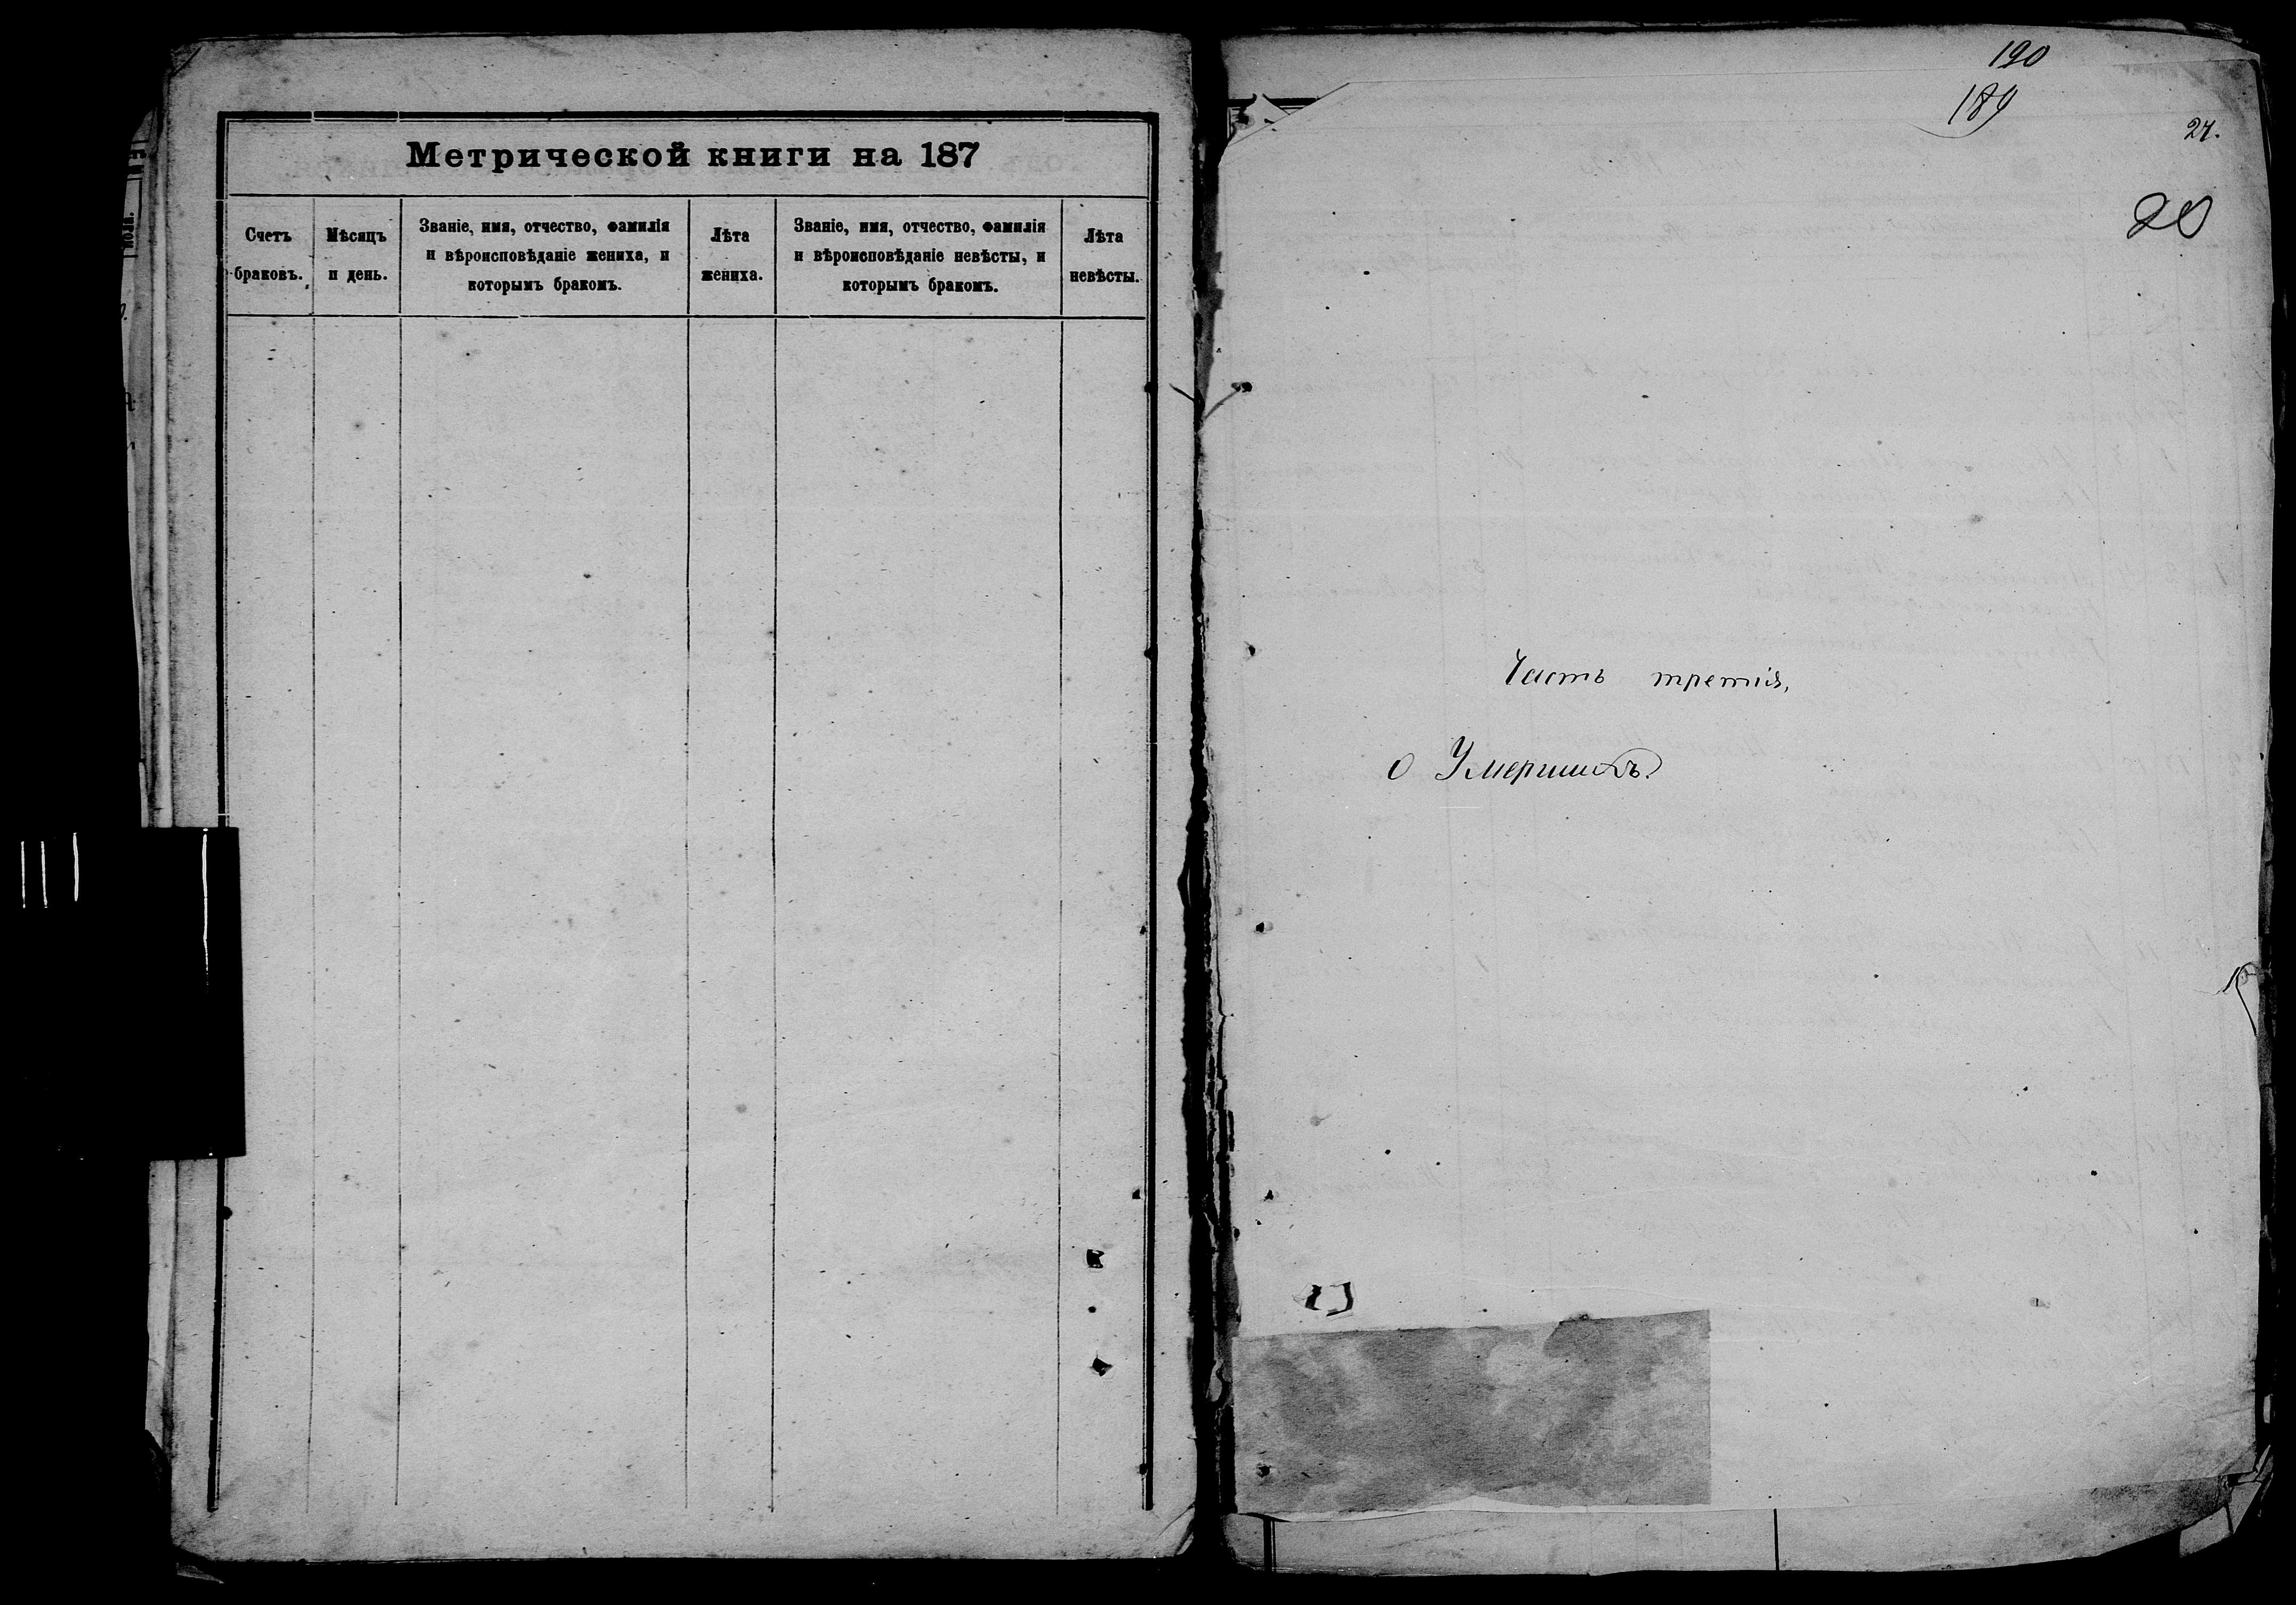 Метрической книги на 187
Счетъ
браковъ.
Мѣсяцъ
и день.
Званіе, имя, отчество, фамилія
и вѣроисповѣданіе жениха, и
которымъ бракомъ.
Лѣта
жениха.
Званіе, имя, отчество, фамилія
и вѣроисповѣданіе невѣсты, и
которымъ бракомъ.
Лѣта
невѣсты.
190
189
Часть третія,
о Умершихъ.